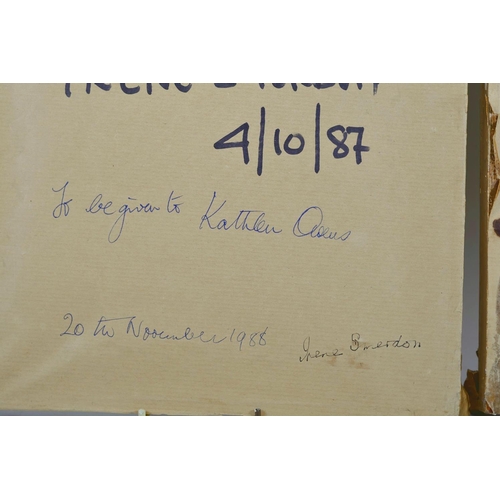 4/10/87
To be given to Kathleen Owens
20th November 1988
Irene Smerdon